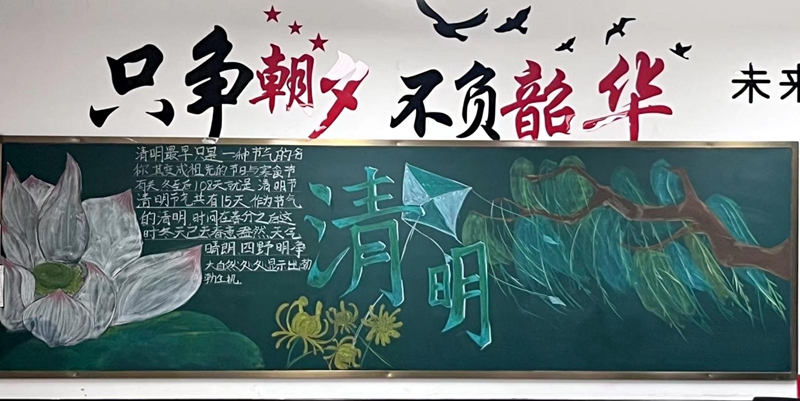 只争朝夕 不负韶华
未来
清明最早只是一种节气的名
称,其变成祖先的节日与寒食节
有关,冬至后108天就是清明节
清明节气共有15天,作为节气
的清明,时间在春分之后,这
时冬天已去,春意盎然,天气
晴朗,四野明净
大自然处处显示出勃
勃生机。
清明